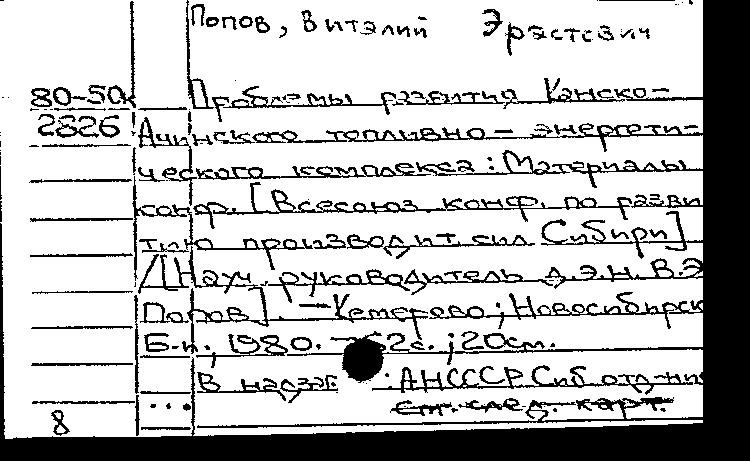 Попов, Виталий Эрастович
80-50к Проблемы развития Канско-
2826 Ачинского топливно-энергети-
ческого комплекса: Материалы
конф. [Всесоюз. конф. по разви
тию производит. сил Сибири]
/[Науч. руководитель д.э.н. В.Э
Попов]. - Кемерово; Новосибирск
Б.и., 1980. - 62с.; 20см.
В надзаг.: АН СССР Сиб отд-ни
... см. след. карт.
8